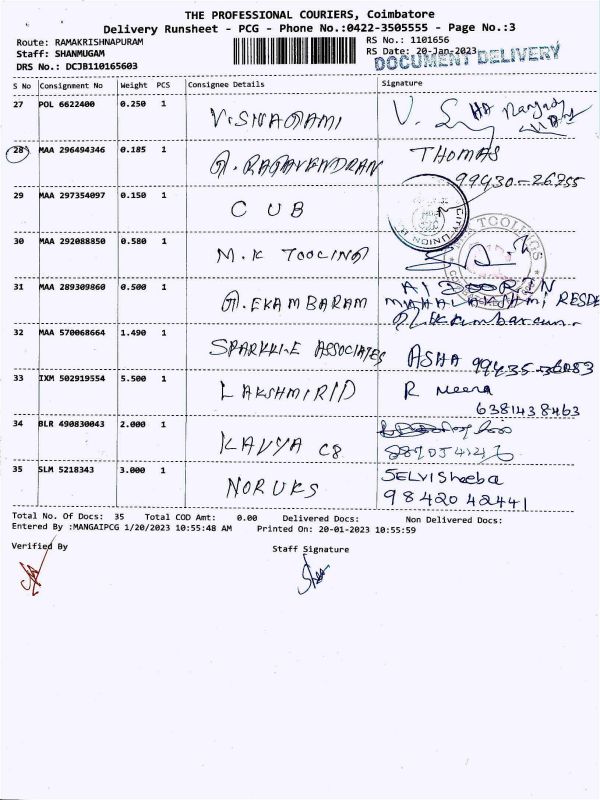 THE PROFESSIONAL COURIERS, Coimbatore
Delivery Runsheet - PCG - Phone No.:0422-3505555 - Page No.:3
Route: RAMAKRISHNAPURAM RS No.: 1101656
Staff: SHANMUGAM RS Date: 20-Jan-2023
DOCUMENT DELIVERY
DRS No.: DCJB110165603
S No Consignment No Weight PCS Consignee Details Signature
27 POL 6622400 0.250 1 VISWAGAMI V.
28 MAA 296494346 0.185 1 G.RAGAVENDRAN THOMAS
99430-26755
29 MAA 297354097 0.150 1 C U B
CITY UNION
30 MAA 292088850 0.580 1 M.K TOOLING
TOOLINGS
31 MAA 289309860 0.500 1 G.EKAMBARAM
MAHALAKSHMI RESDE
32 MAA 570068664 1.490 1 SPARKKLE ASSOCIATES ASHA 99435-36083
33 IXM 502919554 5.500 1 LAKSHMIRID R Meena
6381438463
34 BLR 490830043 2.000 1 KAVYA CB
35 SLM 5218343 3.000 1 NORUKS SELVISheeba
9842042441
Total No. Of Docs: 35 Total COD Amt: 0.00 Delivered Docs: Non Delivered Docs:
Entered By :MANGAIPCG 1/20/2023 10:55:48 AM Printed On: 20-01-2023 10:55:59
Verified By Staff Signature